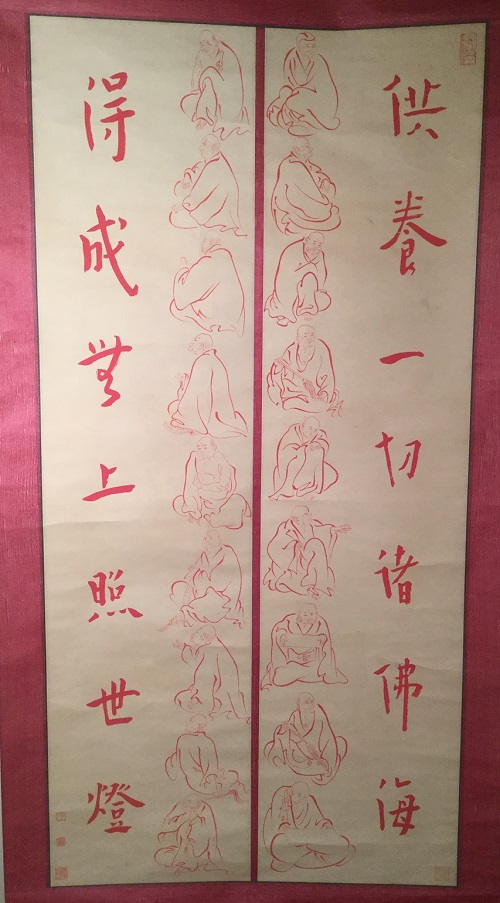 供養一切諸佛海
得成無上照世燈